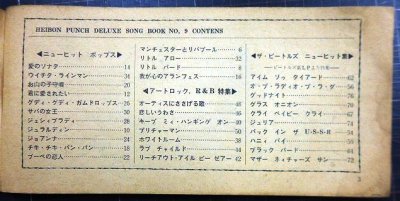 HEIBON PUNCH DELUXE SONG BOOK NO. 9 CONTENS
◀ニューヒット ポップス▶
愛のソナタ 14
ウイチタ・ラインマン 34
お山の子守唄 20
君に愛されたい 12
グディ・グディ・ガムドロップス 26
サバの女王 30
ジェシィブラディ 28
ジュラルディン 10
ジョアンナ 24
チキ・チキ・バン・バン 18
ブーベの恋人 22
マンチェスターとリバプール 6
リトル アロー 32
リトル バード 8
我が心のアランフェス 16
◀アートロック、R&B 特集▶
オーティスにささげる歌 46
悲しいうわさ 36
キープ ミィ・ハンギング オン 40
プリチャーマン 50
ホワイトルーム 38
ラブ チャイルド 44
リーチアウト・アイル ビー ゼアー 42
◀ザ・ビートルズ ニューヒット集▶
アイム ソゥ タイアード 62
オ・ブ・ラディオ・ブ・ラ・ダ 56
グッドナイト
グラス オニオン
クライ ベイビー クライ
ジュリア
バック イン ザ U・S・S・R 54
ハニィ パイ
ブラック バード
マザー ネイチャーズ サン 72
3